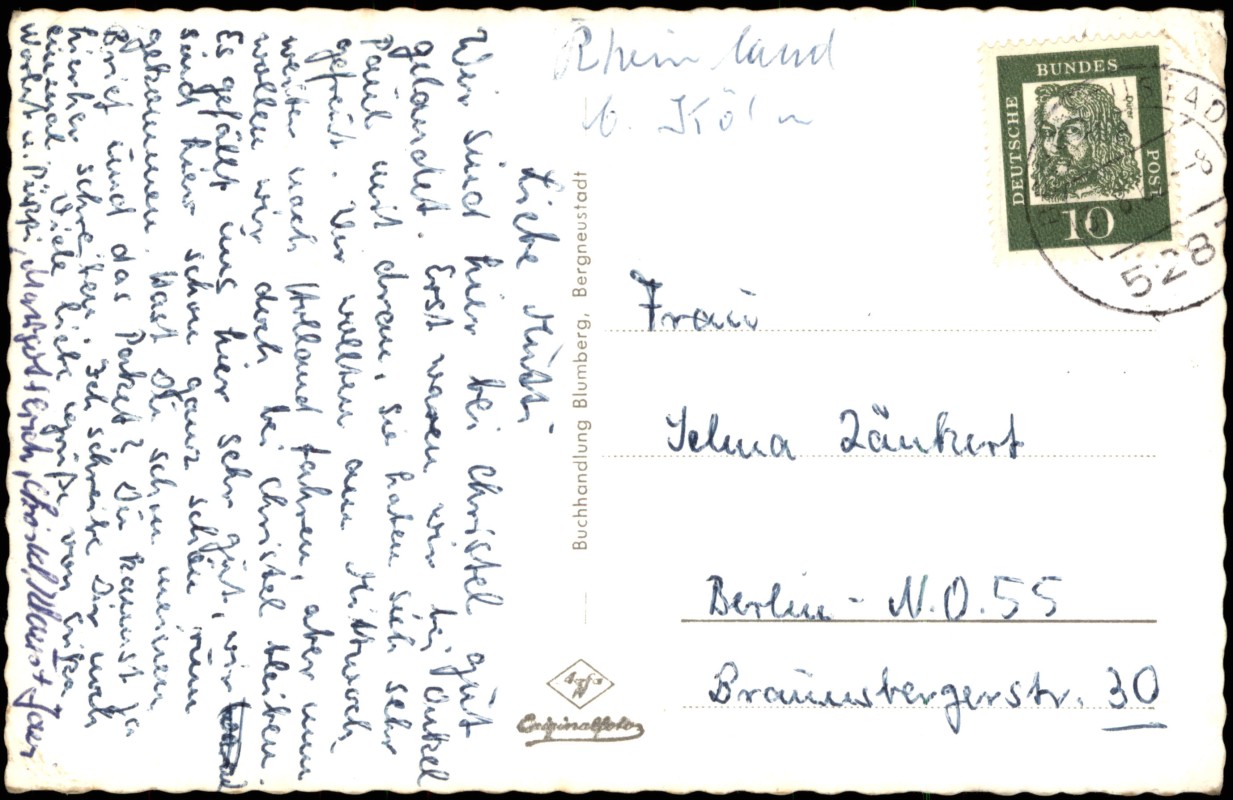 Rheinland
b. Köln
Liebe Mutti,
Wir sind hier bei Christel gut
gelandet. Erst waren wir bei Onkel
Paul mit dran, sie haben sich sehr
gefreut. Wir wollten am Mittwoch
weiter nach Holland fahren, aber nun
wollen wir doch bei Christel bleiben
Es gefällt uns hier sehr gut, wir
sind hier schon ganz schön rum
gekommen. Hast Du schon meinen
Brief und das Paket? Du kannst ja
hierher schreiben. Ich schreibe Dir noch
einmal. Viele liebe Grüße von Erika,
u. Püppi, Margot + Erich, Christel
Buchhandlung Blumberg, Bergneustadt
Agfa
Originalfoto
DEUTSCHE
BUNDES
POST
Dürer
10
528
Frau
Selma Zänkert
Berlin - N.O. 55
Braunsbergerstr. 30